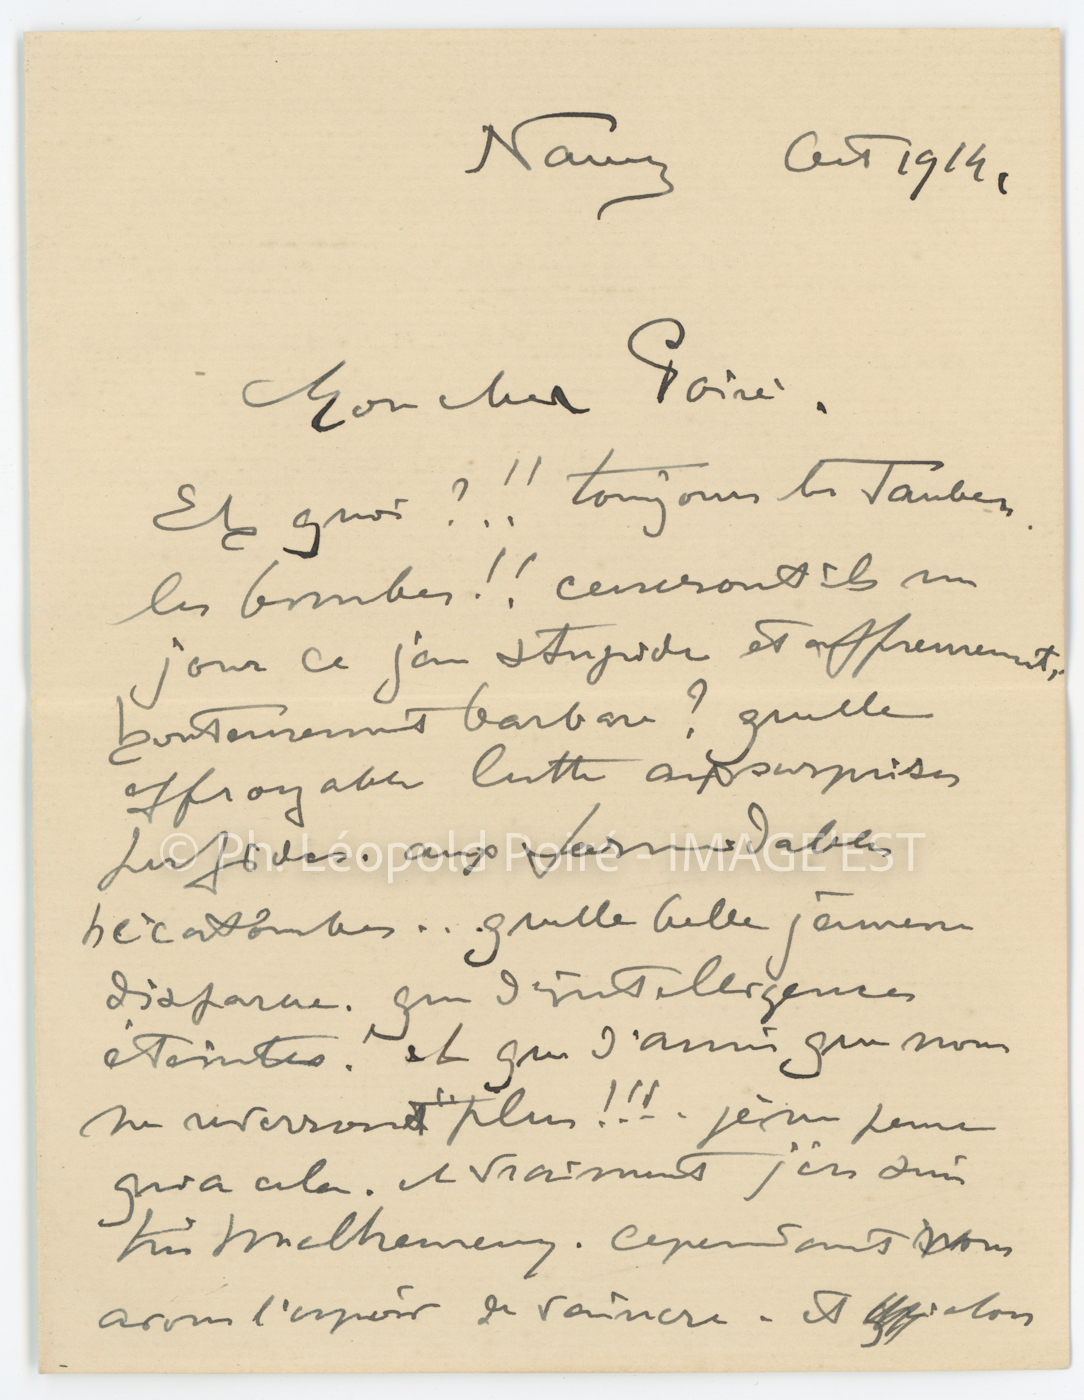 Nancy Oct 1914.
Mon cher Poiré.
Et quoi ?!! toujours les Taubes.
les bombes !! cesseront ils un
jour ce jeu stupide et affreusement,
honteusement barbare ? quelle
effroyable lutte aux surprises
perfides. aux formidables
hécatombes... quelle belle jeunesse
disparue. que d'intelligences
éteintes ! et que d'amis que nous
ne reverrons plus !!! . je ne pense
qu'a cela. et vraiment j'en suis
très malheureux. cependant nous
avons l'espoir de vaincre - et alors
© Ph. Léopold Poiré - IMAGE'EST